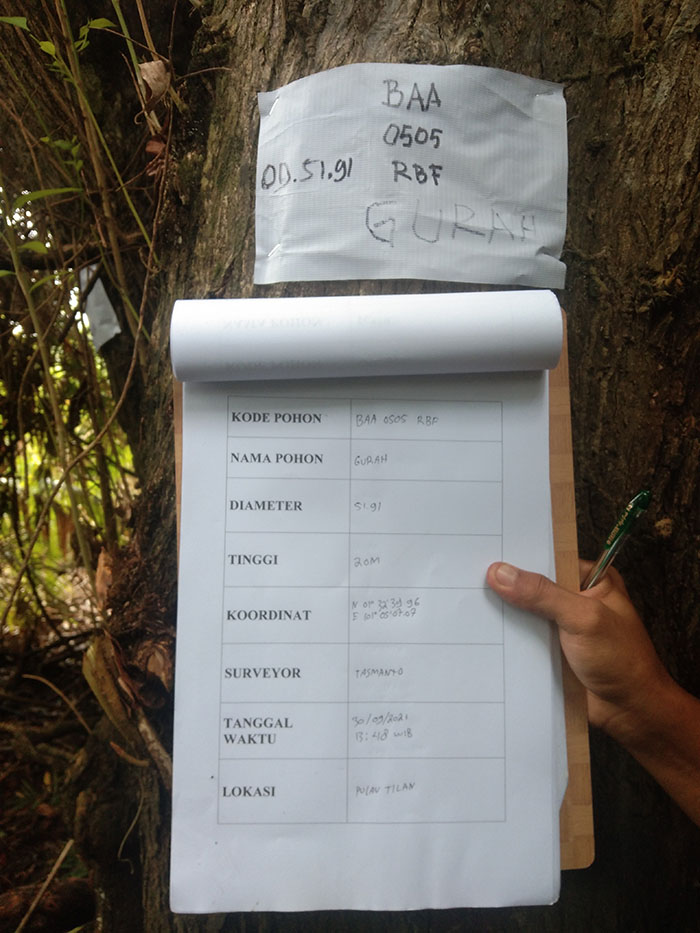 BAA
0505
DD.51.91 RBF
GURAH
KODE POHON BAA 0505 RBF
NAMA POHON GURAH
DIAMETER 51.91
TINGGI 20M
KOORDINAT N 01° 32' 39 96
E 101° 05' 07 07
SURVEYOR TASMANTO
TANGGAL 30/09/2021
WAKTU 13:48 WIB
LOKASI PULAU TILAN